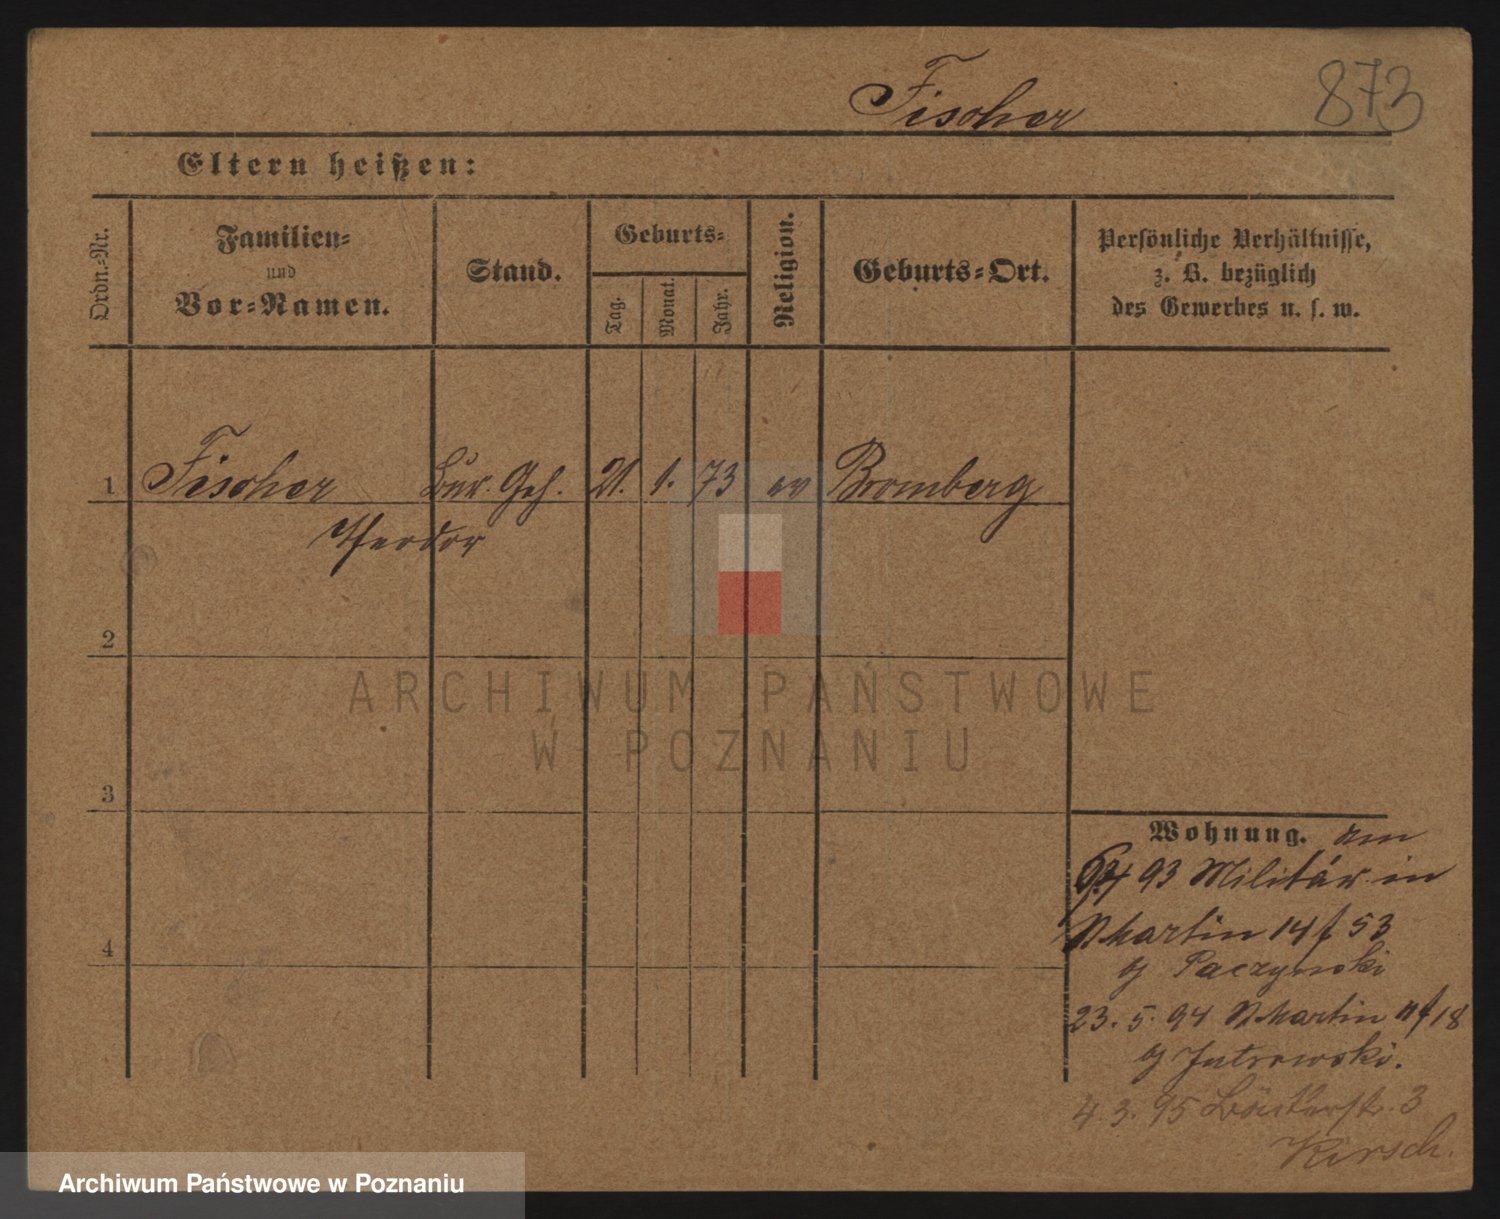 Fischer 873
Eltern heißen:
Ordn.-Nr.
Familien-
und
Vor-Namen.
Stand.
Geburts-
Tag.
Monat.
Jahr.
Religion.
Geburts-Ort.
Persönliche Verhältnisse,
z. B. bezüglich
des Gewerbes u. s. w.
1 Fischer Bür. Geh. 21. 1. 73 ev Bromberg
Theodor
2
ARCHIWUM PAŃSTWOWE
W POZNANIU
3
Wohnung. am
93 Militär in
Martin 14/53
Paczynski
4
23. 5. 94 Martin 18
Jutrowski.
4. 3. 95 3
Kirsch.
Archiwum Państwowe w Poznaniu